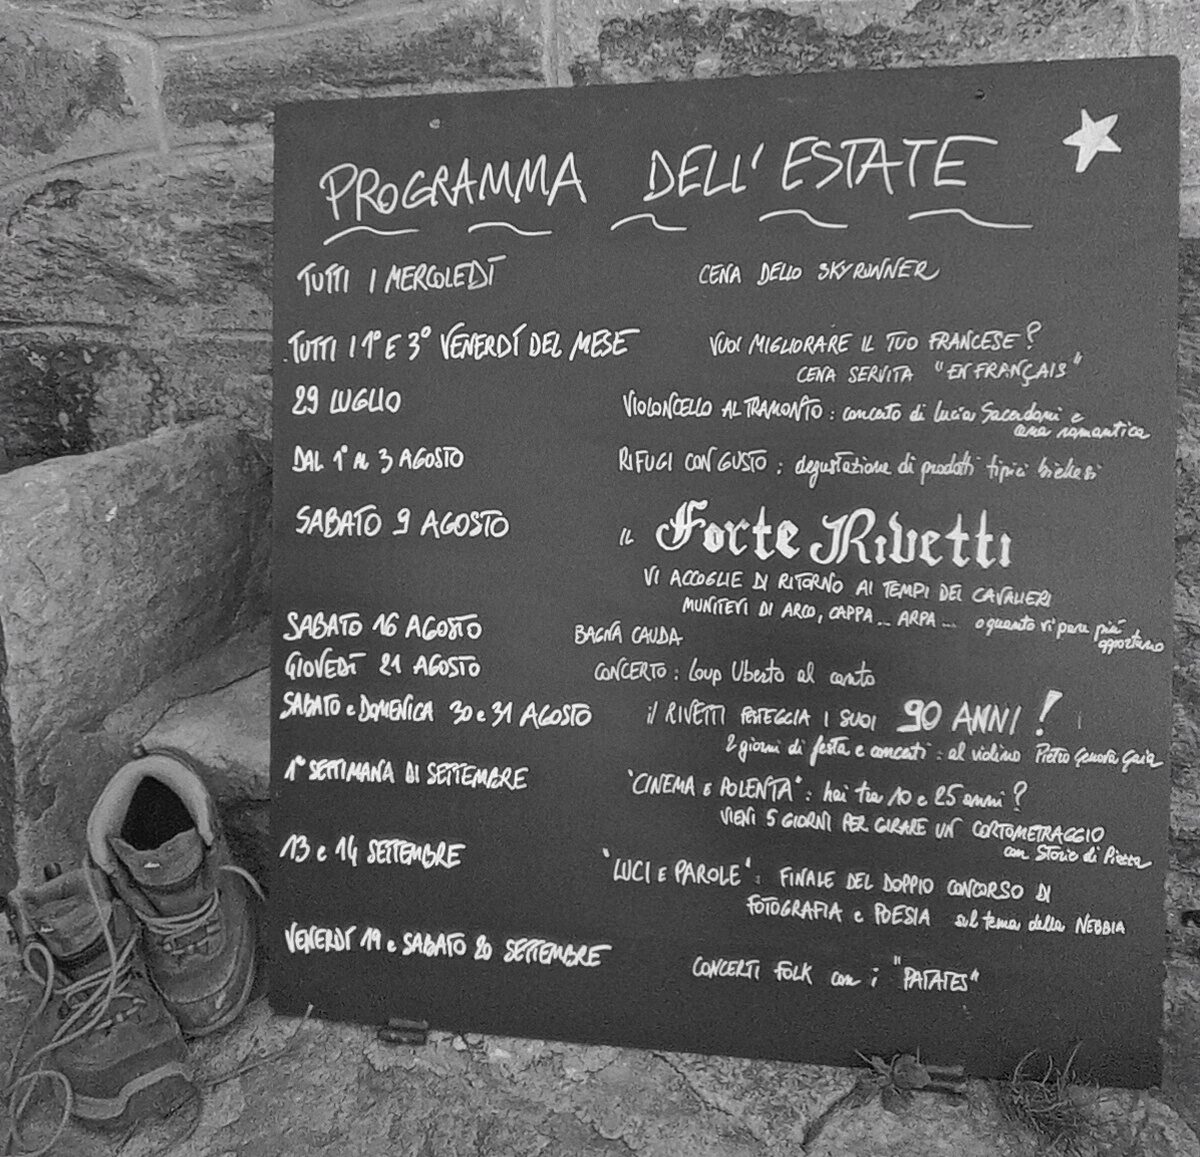 PROGRAMMA DELL'ESTATE
TUTTI I MERCOLEDÌ CENA DELLO SKYRUNNER
TUTTI I 1° E 3° VENERDÍ DEL MESE VUOI MIGLIORARE IL TUO FRANCESE?
CENA SERVITA "EN FRANÇAIS"
29 LUGLIO VIOLONCELLO AL TRAMONTO: concerto di Lucia Sacerdoni e
cena romantica
DAL 1° AL 3 AGOSTO RIFUGI CON GUSTO: degustazione di prodotti tipici biellesi
SABATO 9 AGOSTO IL Forte Rivetti
VI ACCOGLIE DI RITORNO AI TEMPI DEI CAVALIERI
MUNITEVI DI ARCO, CAPPA... ARPA... o quanto vi pare più
opportuno
SABATO 16 AGOSTO BAGNA CAUDA
GIOVEDÌ 21 AGOSTO CONCERTO: Loup Uberto al canto
SABATO e DOMENICA 30 e 31 AGOSTO il RIVETTI FESTEGGIA I SUOI 90 ANNI!
2 giorni di festa e concerti: al violino Pietro Genova Gaia
1° SETTIMANA DI SETTEMBRE "CINEMA E POLENTA": hai tra 10 e 25 anni?
VIENI 5 GIORNI PER GIRARE UN CORTOMETRAGGIO
con Storie di Piazza
13 e 14 SETTEMBRE "LUCI E PAROLE": FINALE DEL DOPPIO CONCORSO DI
FOTOGRAFIA e POESIA sul tema della NEBBIA
VENERDÌ 19 e SABATO 20 SETTEMBRE CONCERTI FOLK con i "PATATES"